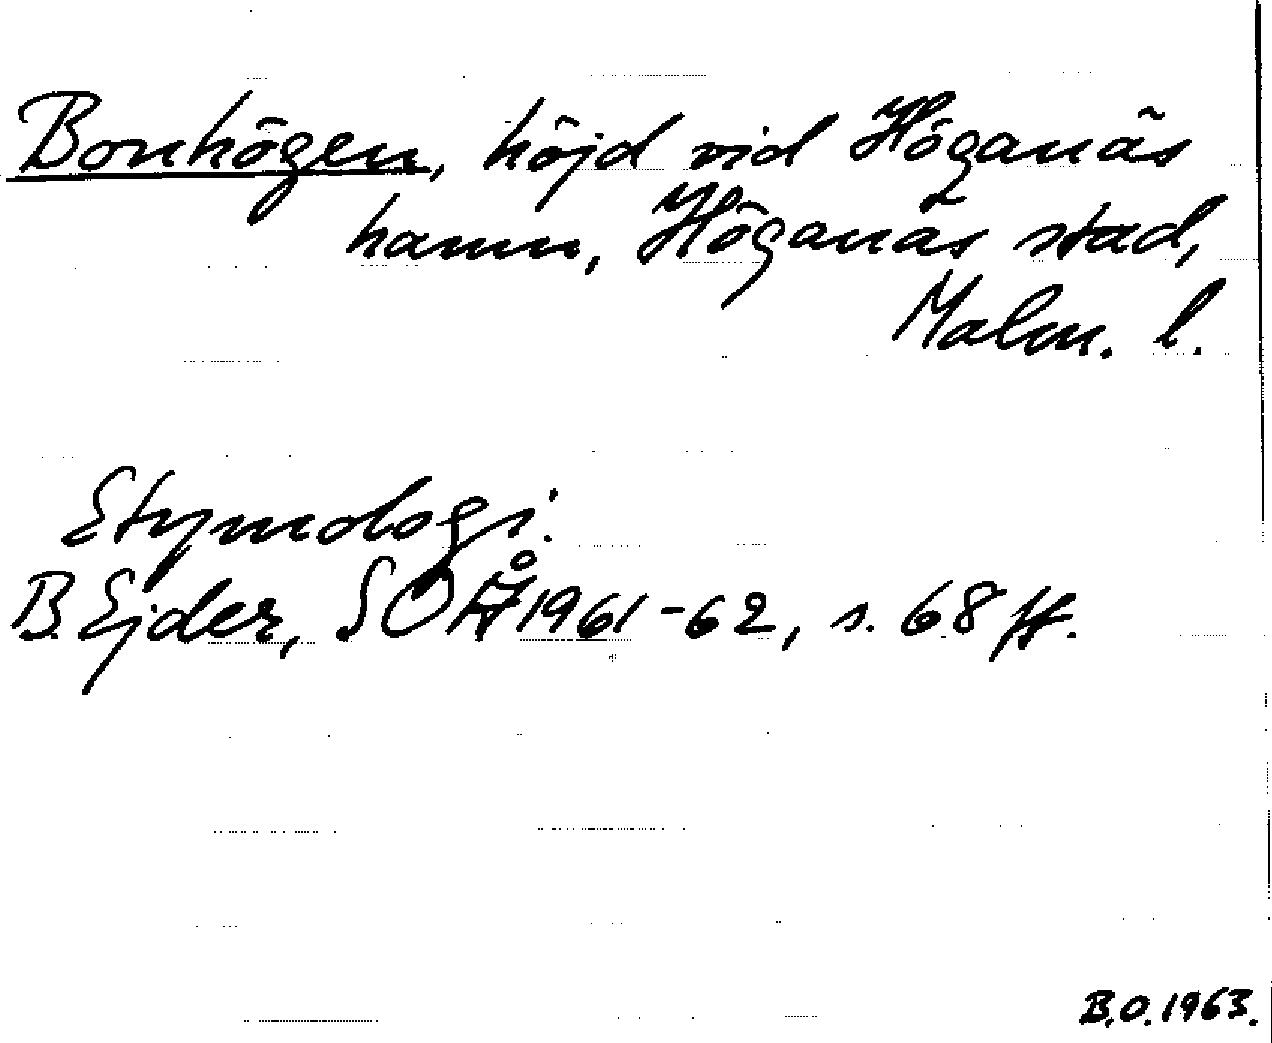 Bonhögen, höjd vid Höganäs
hamn, Höganäs stad,
Malm. l.
Etymologi:
B. Ejder, SOÅ 1961-62, s. 68 ff.
B.O. 1963.